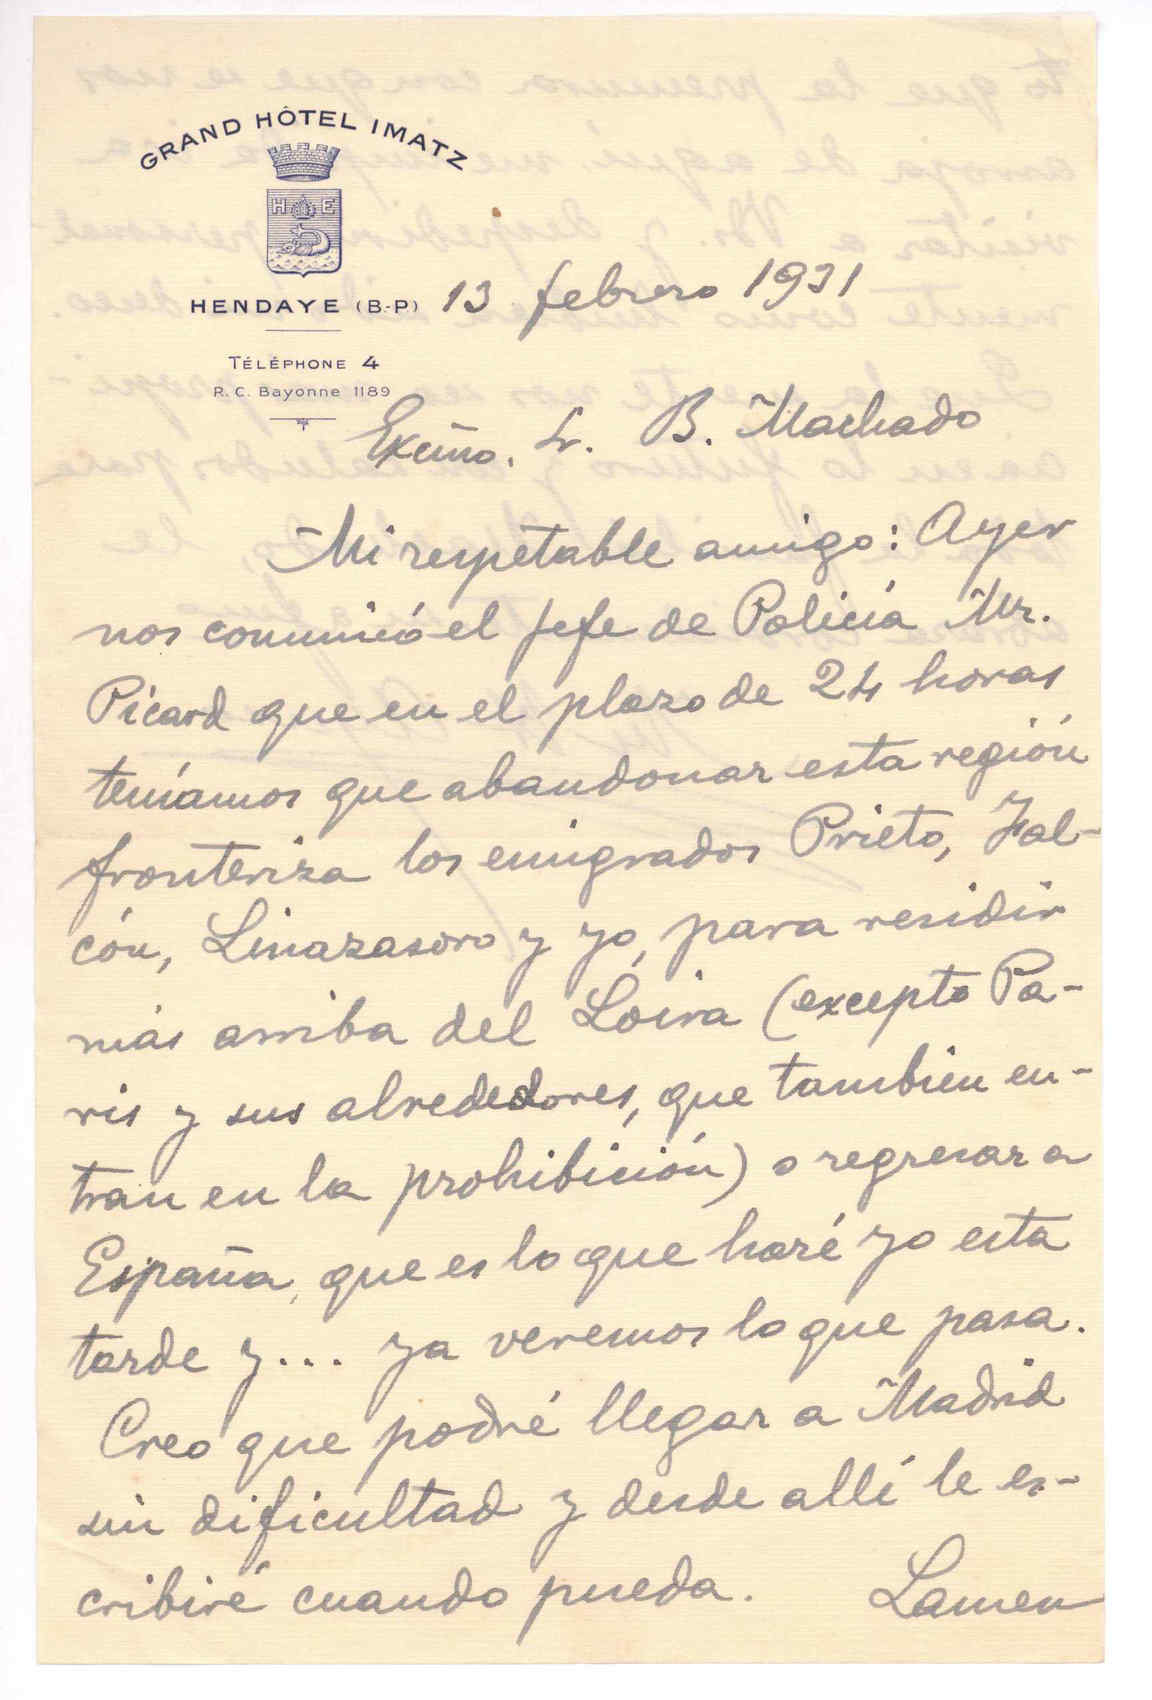 GRAND HÔTEL IMATZ
H E
HENDAYE (B-P) 13 febrero 1931
TÉLÉPHONE 4
R. C. Bayonne 1189
Excmo. Sr. B. Machado
Mi respetable amigo: Ayer
nos comunicó el Jefe de Policía Mr.
Picard que en el plazo de 24 horas
teníamos que abandonar esta región
fronteriza los emigrados Prieto, Fal-
cón, Linazasoro y yo, para residir
más arriba del Loira (excepto Pa-
ris y sus alrededores, que también en-
tran en la prohibición) o regresar a
España, que es lo que haré yo esta
tarde y... ya veremos lo que pasa.
Creo que podré llegar a Madrid
sin dificultad y desde allí le es-
cribiré cuando pueda. Lamen